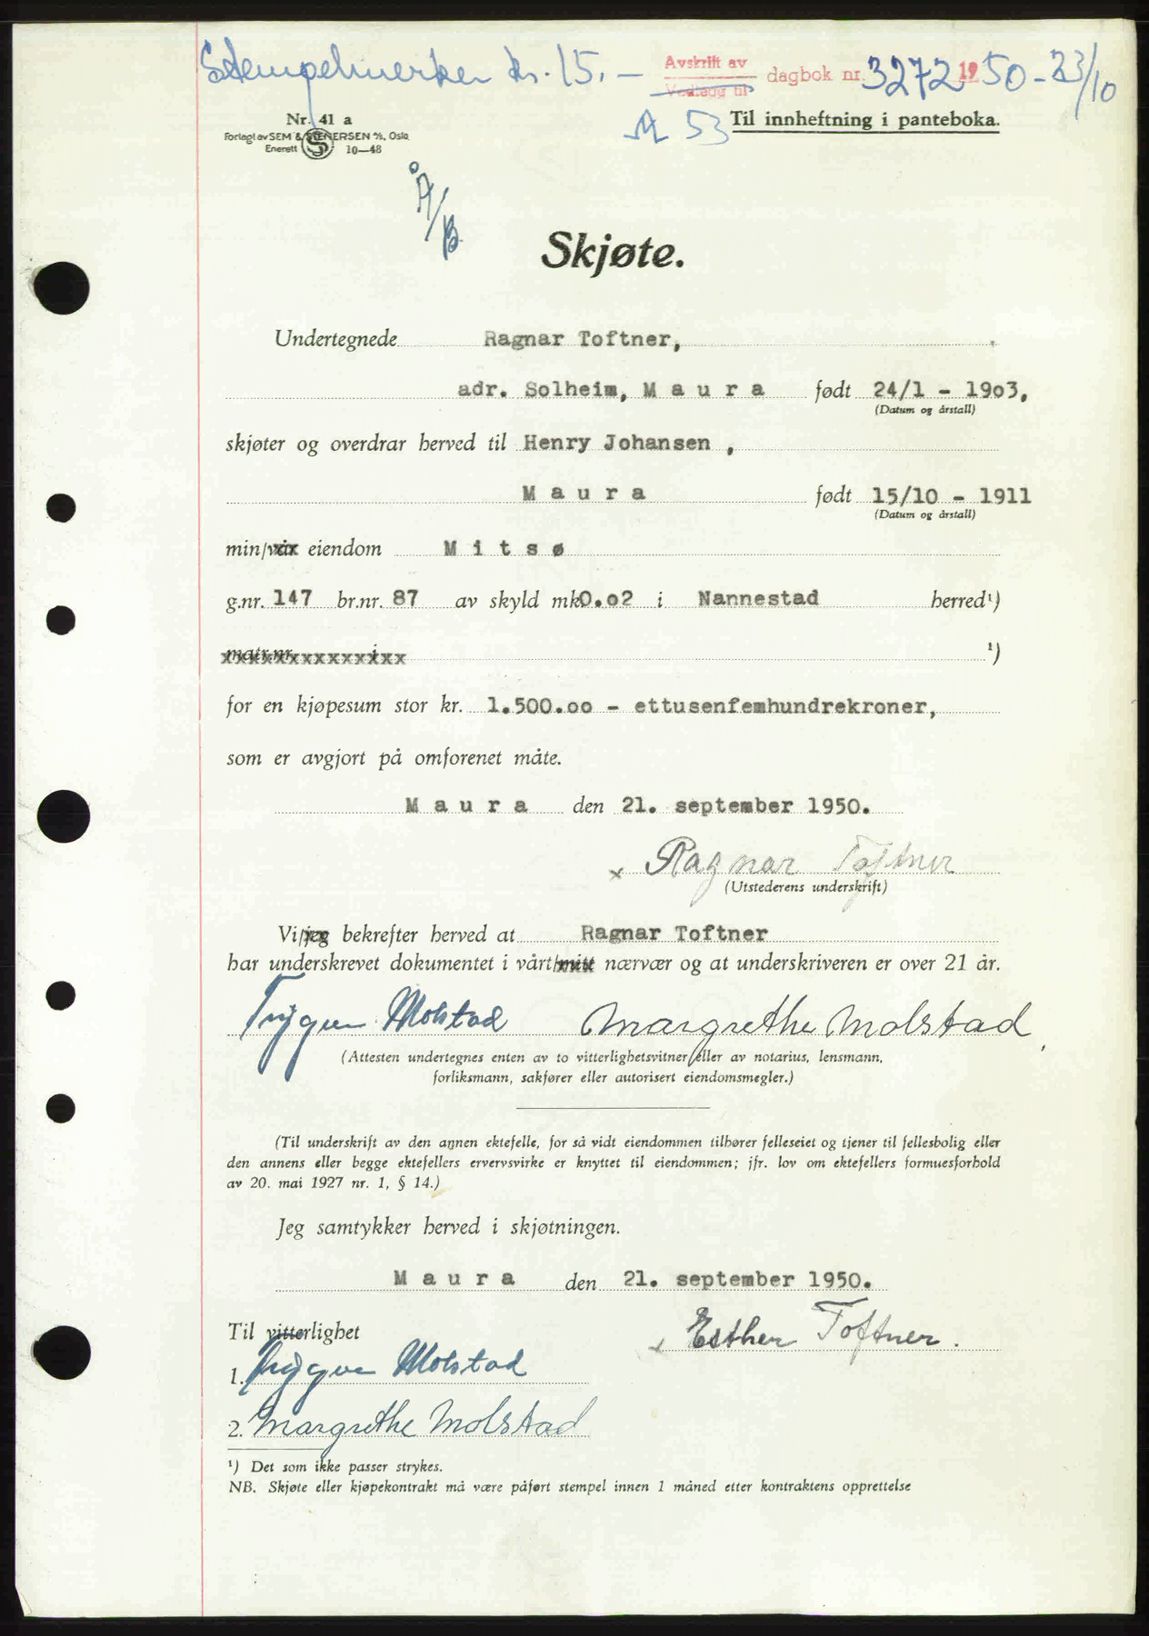 Stempelmerker kr. 15.-
Avskrift av
Vedlegg til
dagbok nr. 3272 1950-23/10
A 53
Til innheftning i panteboka.
Nr. 41 a
Forlagt av SEM & STENERSEN A/S, Oslo
Enerett S 10—48
Å/B
Skjøte.
Undertegnede Ragnar Toftner,
adr. Solheim, M a u r a født 24/1 - 19o3,
(Datum og årstall)
skjøter og overdrar herved til Henry Johansen ,
M a u r a født 15/10 - 1911
(Datum og årstall)
min/vår eiendom M i t s ø
g.nr. 147 br.nr. 87 av skyld mk0.o2 i Nannestad herred¹)
matr.nr. i ¹)
for en kjøpesum stor kr. 1.500.oo - ettusenfemhundrekroner,
som er avgjort på omforenet måte.
M a u r a den 21. september 1950.
x Ragnar Toftner
(Utstederens underskrift)
Vi/jeg bekrefter herved at Ragnar Toftner
har underskrevet dokumentet i vårt/mitt nærvær og at underskriveren er over 21 år.
Trygve Molstad Margrethe Molstad
(Attesten undertegnes enten av to vitterlighetsvitner eller av notarius, lensmann,
forliksmann, sakfører eller autorisert eiendomsmegler.)
(Til underskrift av den annen ektefelle, for så vidt eiendommen tilhører felleseiet og tjener til fellesbolig eller
den annens eller begge ektefellers ervervsvirke er knyttet til eiendommen; jfr. lov om ektefellers formuesforhold
av 20. mai 1927 nr. 1, § 14.)
Jeg samtykker herved i skjøtningen.
M a u r a den 21. september 1950.
Til vitterlighet
x Esther Toftner.
1. Trygve Molstad
2. Margrethe Molstad
¹) Det som ikke passer strykes.
NB. Skjøte eller kjøpekontrakt må være påført stempel innen 1 måned etter kontraktens opprettelse